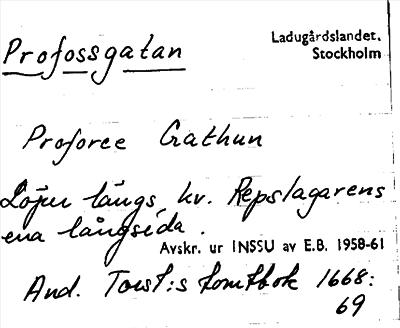 Profossgatan
Ladugårdslandet.
Stockholm
Proforce Gathun
Löper längs kv. Repslagarens
ena långsida.
Avskr. ur INSSU av E.B. 1958-61
And. Torst:s tomtbok 1668:
69